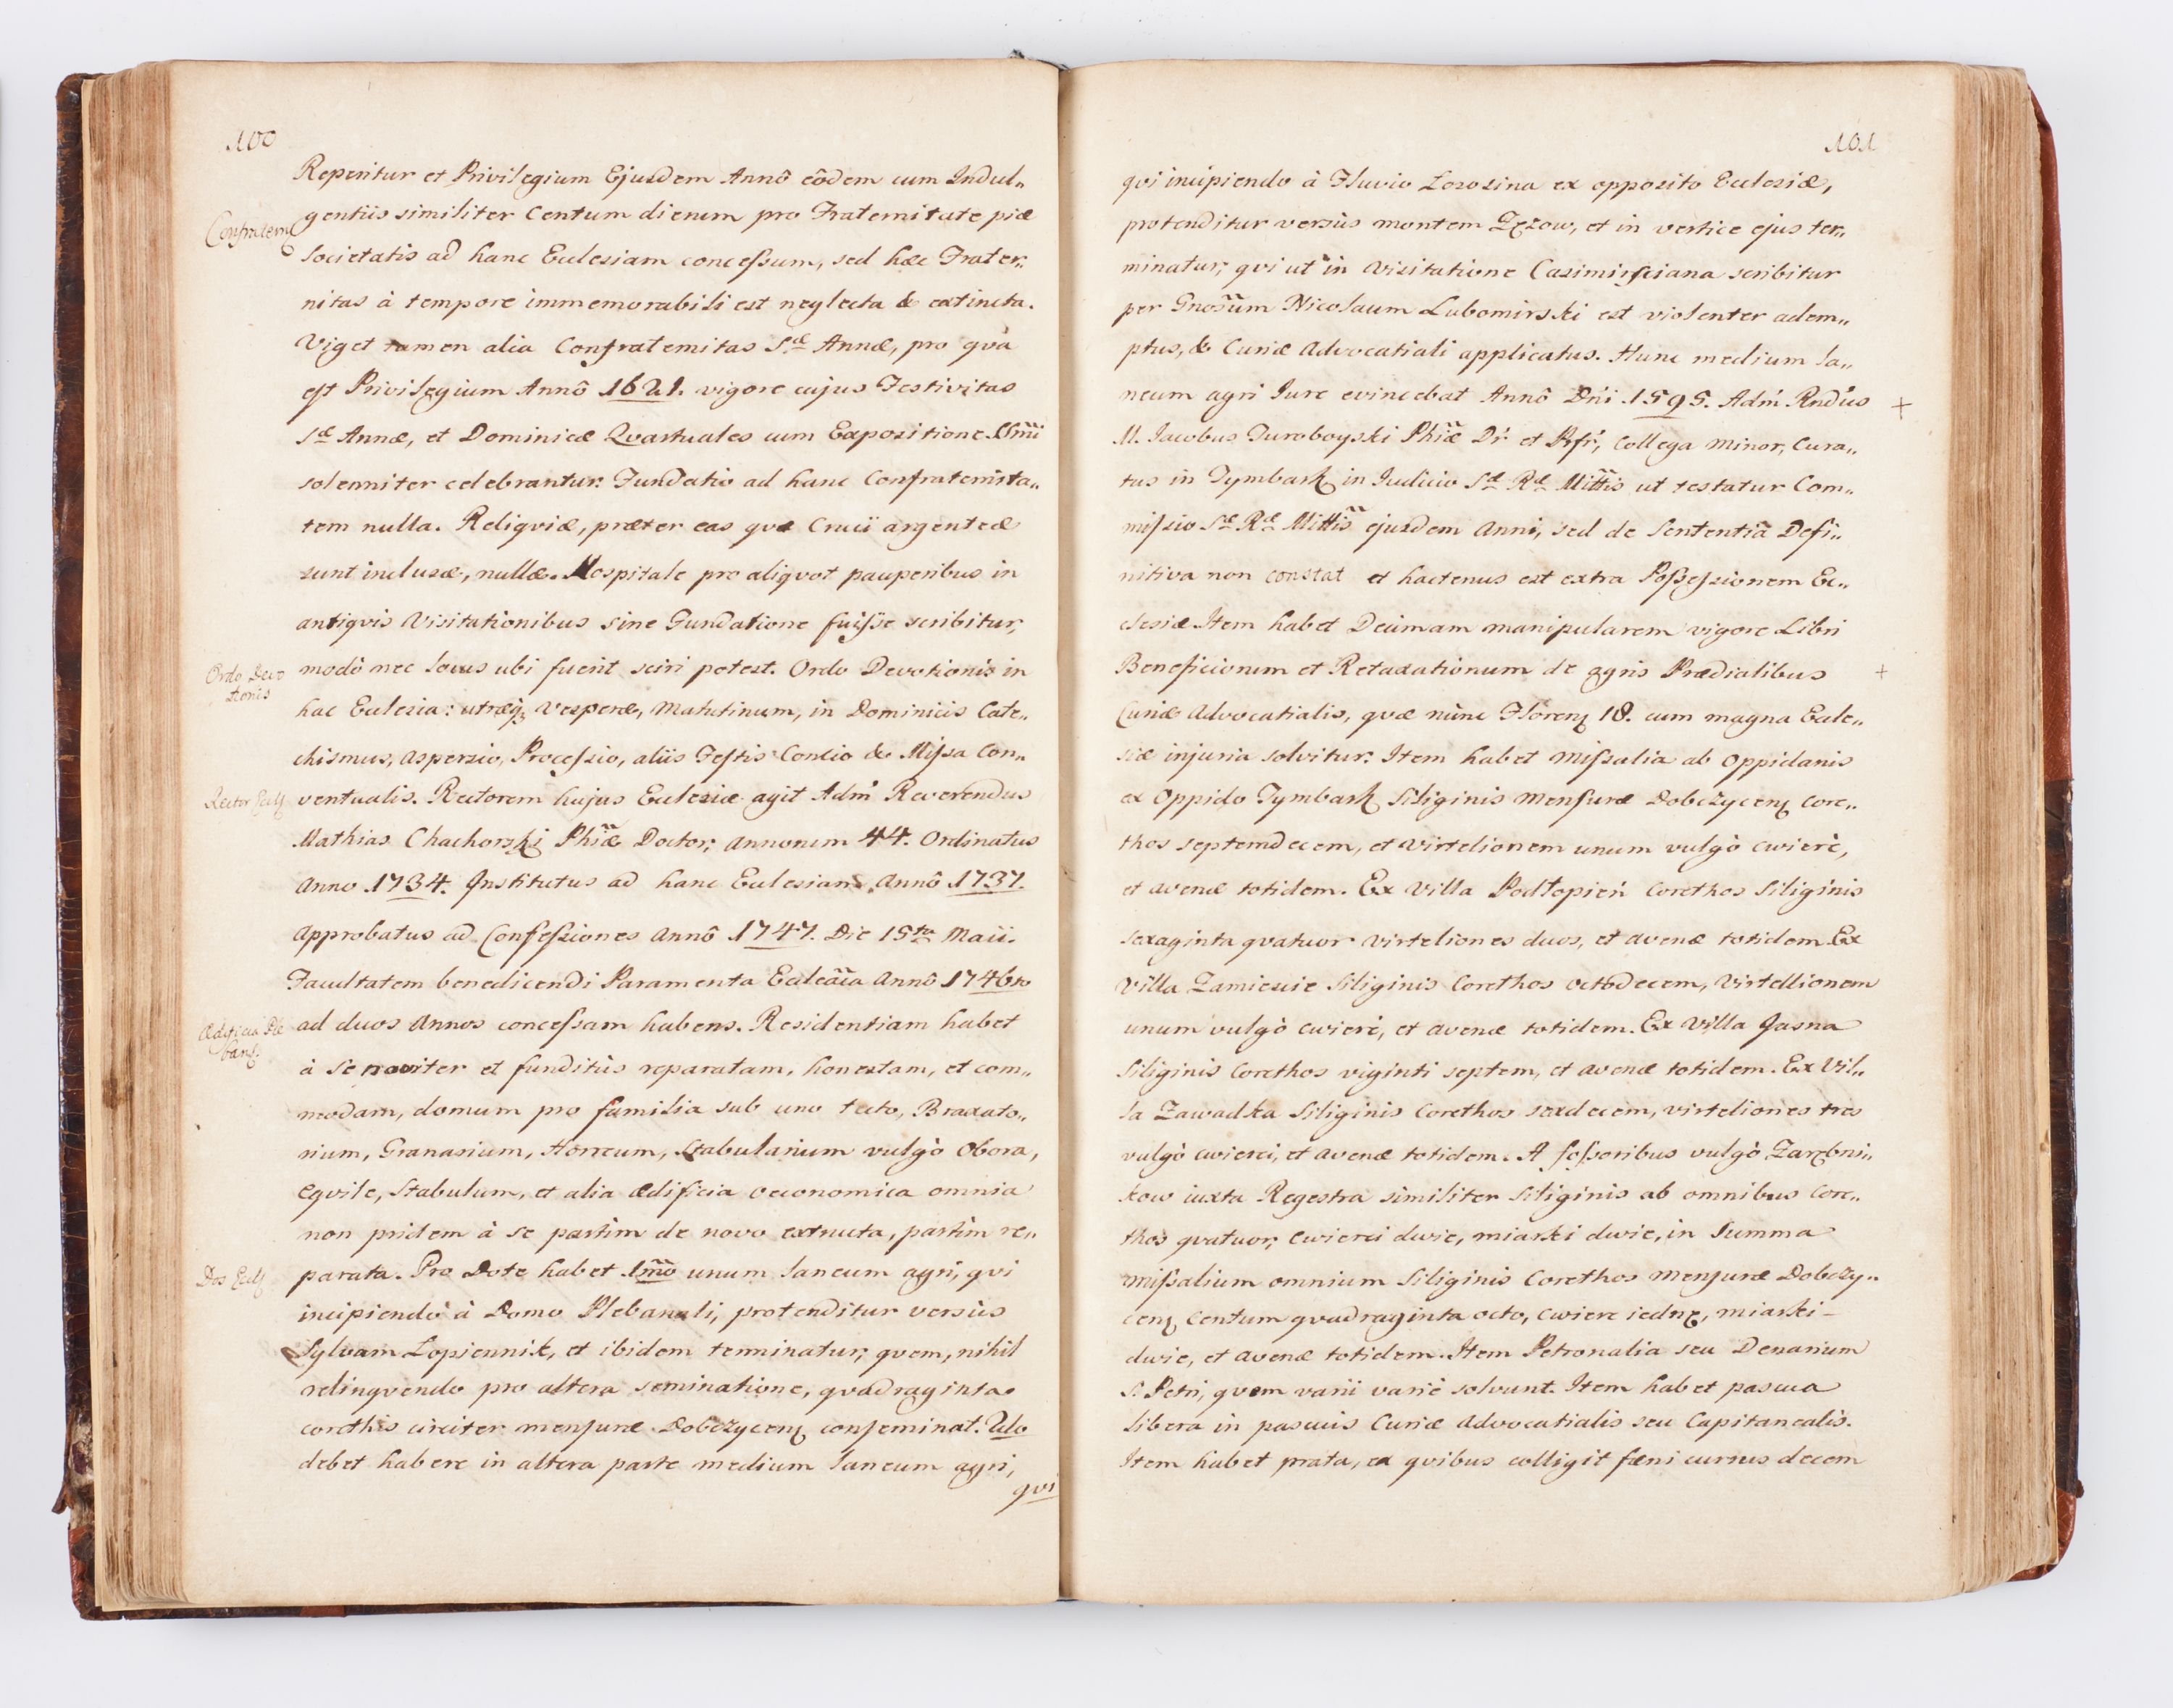 100
Reperitur et Privilegium Ejusdem Annô eôdem cum Indul„
Confratern
gentiis similiter Centum dierum pro Fraternitate piæ
Societatis ad hanc Ecclesiam concessum, sed hæc Frater„
nitas à tempore immemorabili est neglecta & extincta.
Viget tamen alia Confraternitas S.æ Annæ, pro qvâ
est Privilegium Annô 1621. vigore cujus Festivitas
S.æ Annæ, et Dominicæ Qvartuales cum Expositione SSm̃i
solenniter celebrantur. Fundatio ad hanc Confraternita„
tem nulla. Reliqviæ, præter eas qvæ Cruci argenteæ
sunt inclusæ, nullæ. Hospitale pro aliqvot pauperibus in
antiqvis Visitationibus sine Fundatione fuisse scribitur,
Ordo Devo
tionis
modò nec locus ubi fuerit sciri potest. Ordo Devotionis in
hac Ecclesia: utræq; Vesperæ, Matutinum, in Dominicis Cate„
chismus, Aspersio, Processio, aliis Festis Concio & Missa Con„
Rector Eccl
ventualis. Rectorem hujus Ecclesiæ agit Adm̃ Reverendus
Mathias Chachorski Phiæ̃ Doctor, annorum 44. Ordinatus
Anno 1734. Institutus ad hanc Ecclesiam, Annô 1737.
Approbatus ad Confessiones Annô 1747. Die 15ta Maii.
Facultatem benedicendi Paramenta Eccleãca Annô 1746to
Ædificia Ple
ban:
ad duos Annos concessam habens. Residentiam habet
à Se noviter et funditùs reparatam, honestam, et com„
modam, domum pro familia sub uno tecto, Braxato„
rium, Granarium, Horreum, Stabularium vulgò Obora,
Eqvile, Stabulum, et alia ædificia oeconomica omnia
non pridem à se partìm de novo extructa, partìm re„
Dos Eccl
parata. Pro Dote habet 1mõ unum laneum agri, qvi
incipiendo à Domo Plebanali, protenditur versùs
Sylvam Łopiennik, et ibidem terminatur, qvem, nihil
relinqvendo pro altera seminatione, qvadraginta
corethis circiter mensuræ Dobczycen conseminat. 2do
debet habere in altera parte medium laneum agri,
qvi
101
qvi incipiendo à Fluvio Lososina ex opposito Ecclesiæ,
protenditur versùs montem Zęzow, et in vertice ejus ter„
minatur, qvi ut in Visitatione Casimirsciana scribitur
per Gnosũm Nicolaum Lubomirski est violenter adem„
ptus, & Curiæ Advocatiali applicatus. Hunc medium la„
neum agri Jure evincebat Annô Dni 1595. Adm̃ Rndus +
M. Jacobus Turoboyski Phiæ̃ Dr et Pfr, Collega Minor, Cura„
tus in Tymbark in Judicio S.æ R.æ Mittis̃ ut testatur Com„
missio S.æ R.æ Mittis̃ ejusdem Anni, sed de Sententiâ Defi„
nitiva non constat et hactenus est extra Possessionem Ec„
clesiæ. Item habet Decimam manipularem vigore Libri
Beneficiorum et Retaxationum de agris Prædialibus +
Curiæ Advocatialis, qvæ nùnc Floren 18. cum magna Eccle„
siæ injuria solvitur. Item habet Missalia ab Oppidanis
ex Oppido Tymbark Siliginis Mensuræ Dobczycen Core„
thos septemdecem, et Virtelionem unum vulgò cwierć,
et avenæ totidem. Ex Villa Podłopień Corethos Siliginis
sexaginta qvatuor Virteliones duos, et avenæ totidem. Ex
Villa Zamiescie Siliginis Corethos octodecem, Virtellionem
unum vulgò cwierć, et avenæ totidem. Ex Villa Jasna
Siliginis Corethos viginti septem, et avenæ totidem. Ex Vil„
la Zawadka Siliginis Corethos sexdecem, virteliones tres
vulgò cwierci, et avenæ totidem. A fossoribus vulgò Zarębni„
kow iuxta Regestra similiter Siliginis ab omnibus Core„
thos qvatuor, cwierci dwie, miarki dwie, in Summa
Missalium omnium Siliginis Corethos Mensuræ Dobczy„
cen Centum qvadraginta octo, cwierc iednę, miarki
dwie, et avenæ totidem. Item Petronalia seu Denarium
S. Petri, qvem varii variè solvunt. Item habet pascua
libera in pascuis Curiæ Advocatialis seu Capitanealis.
Item habet prata, ex qvibus colligit fœni currus decem